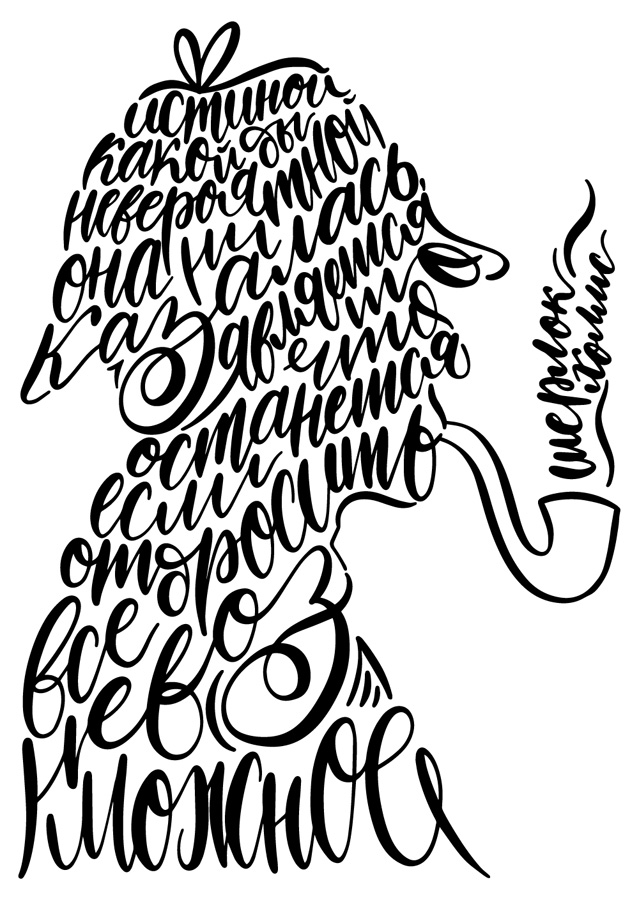 истиной
какой бы
невероятной
она ни
казалась,
является
то что
останется
если
отбросить
все
невоз
можное
шерлок
холмс